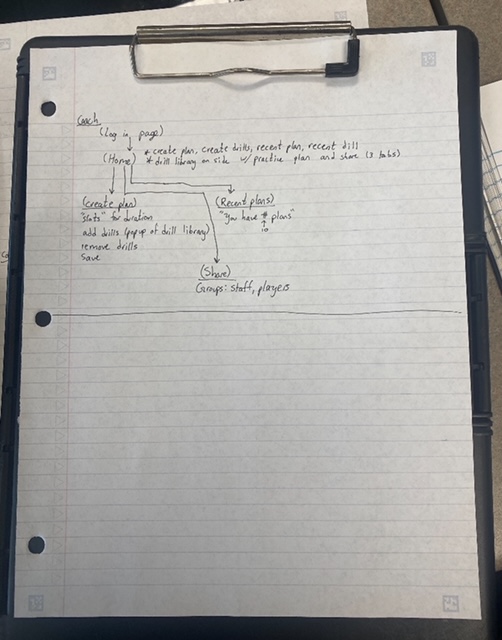 Coach
(Log in page)
* create plan, create drills, recent plan, recent dill
(Home) * drill library on side w/ practice plan and share (3 tabs)
(create plan)
"slots" for duration
add drills (popup of drill library)
remove drills
Save
(Recent plans)
"you have # plans"
10
(Share)
Groups: staff, players